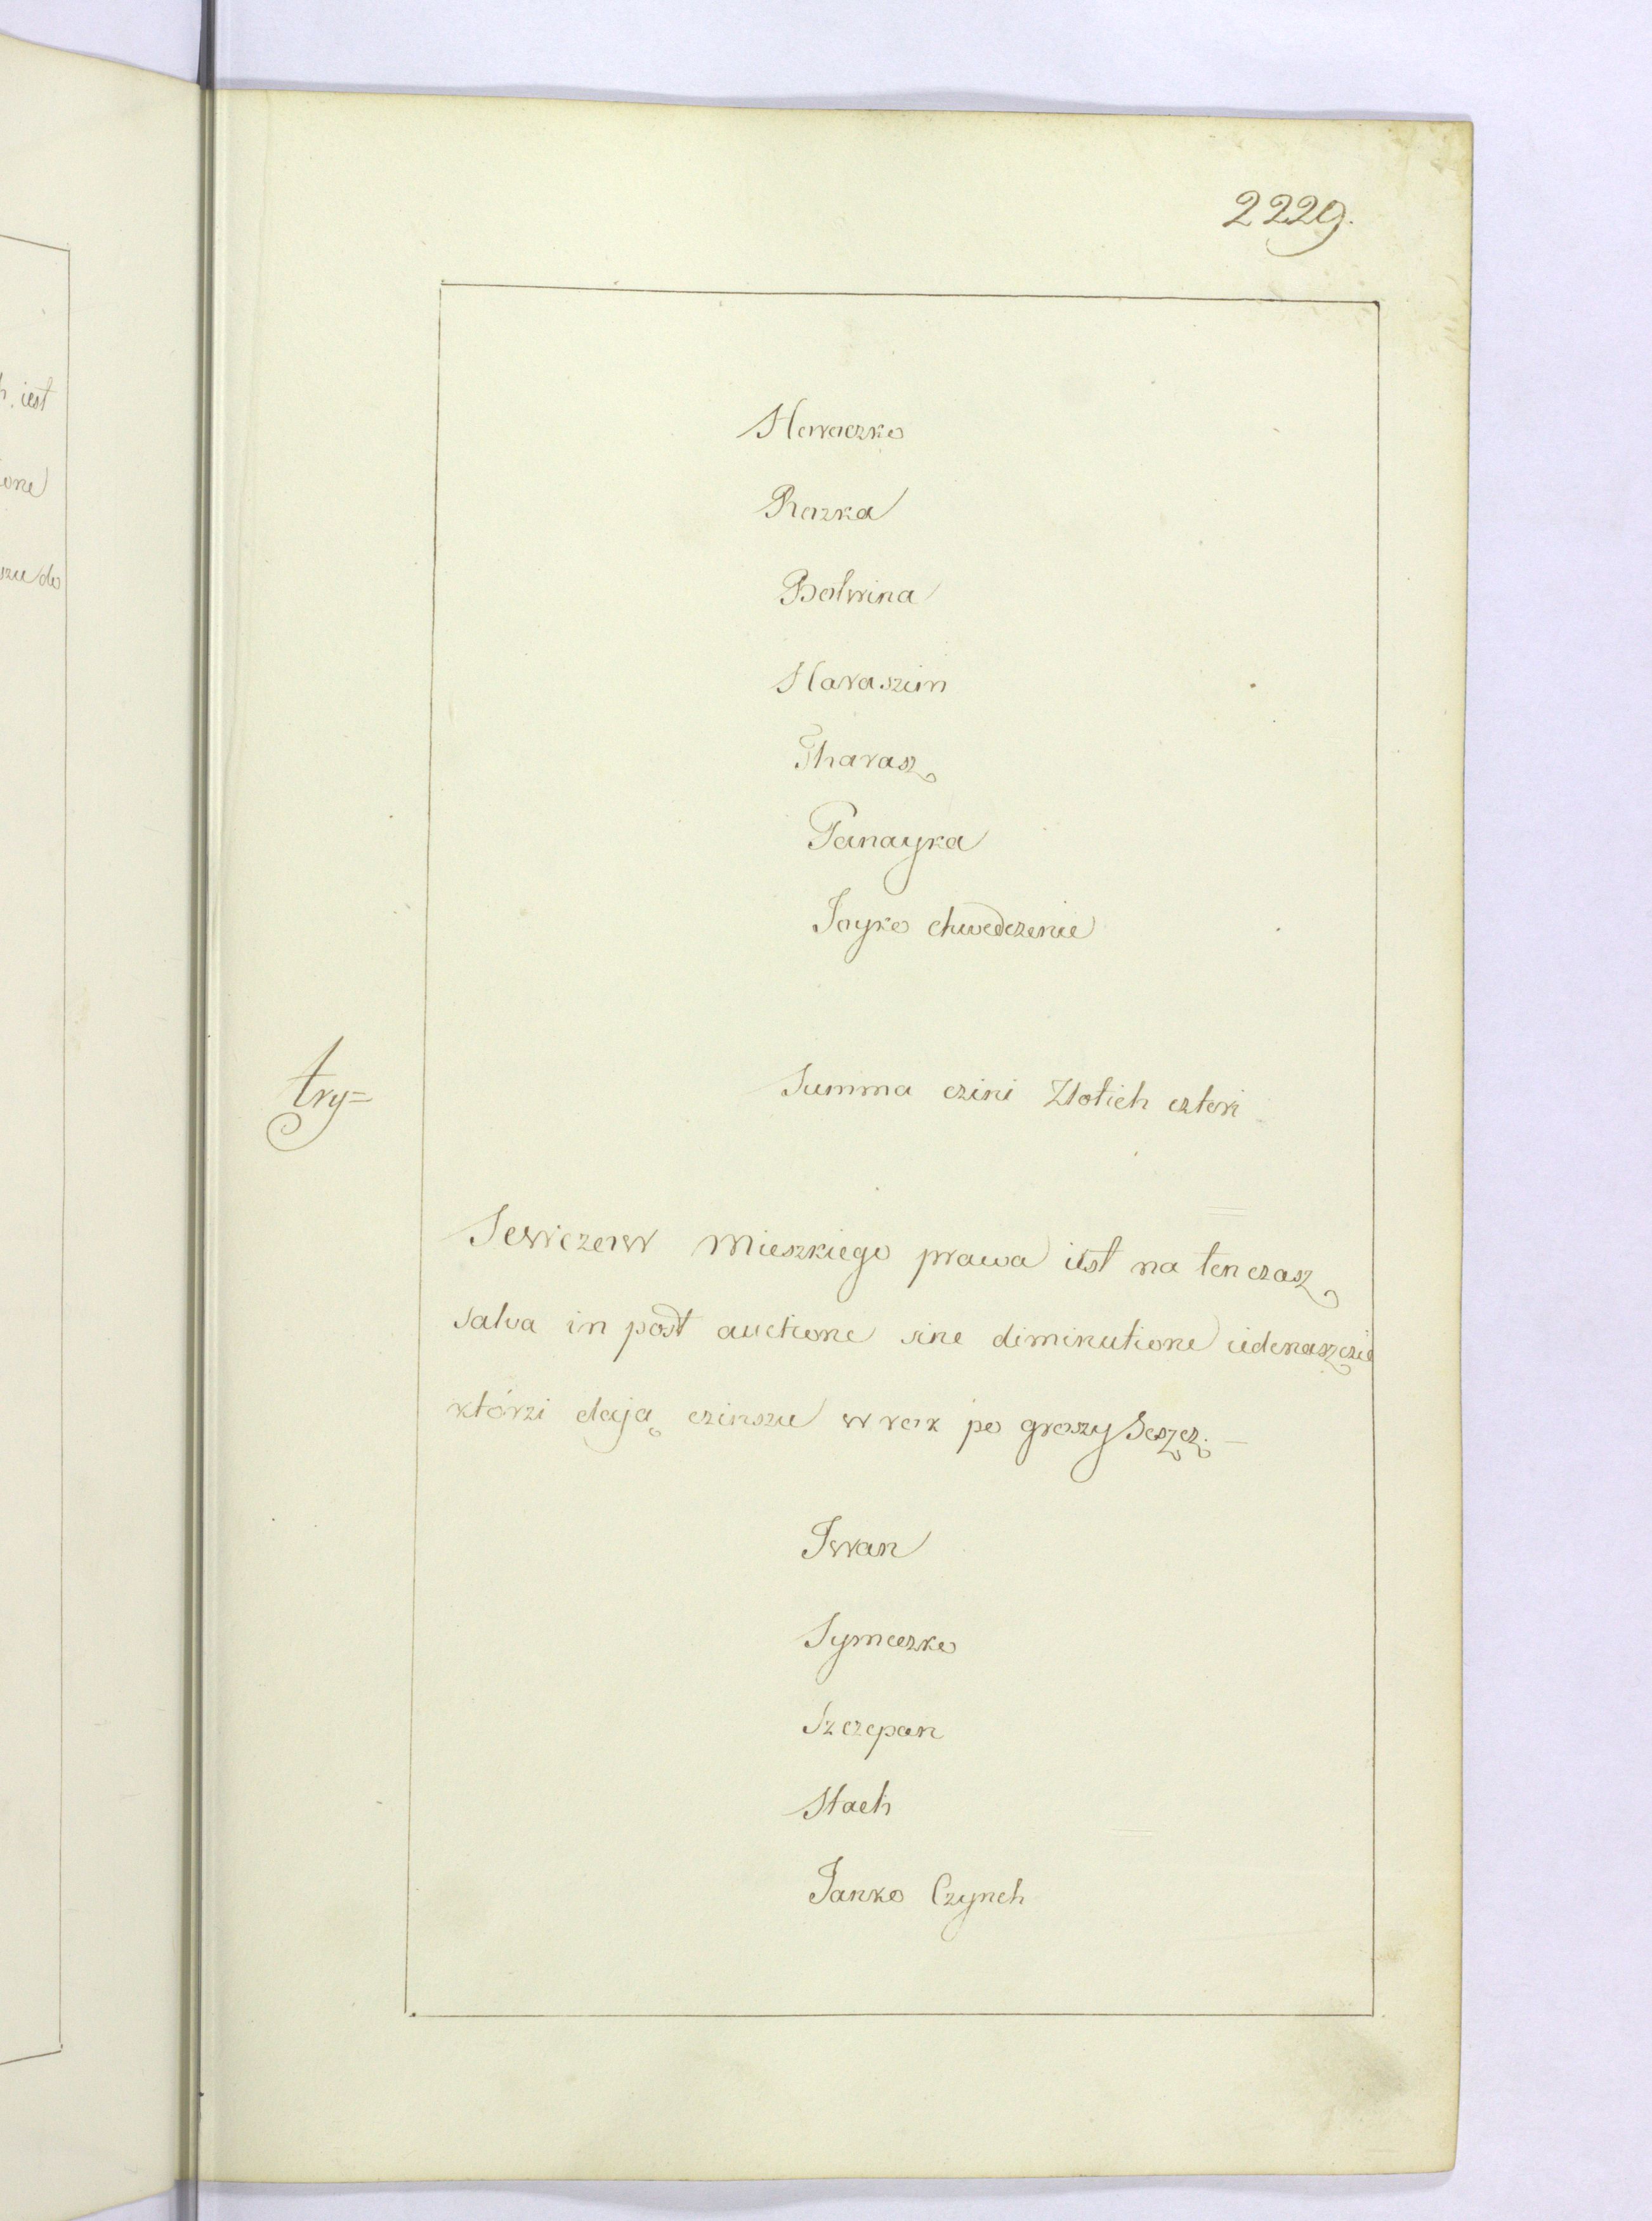 2229.
Hawaczko
Razka
Bolwina
Haraszim
Tharasz
Panayka
Jayko chwedczenie
try=
Summa czini Złotich czteri
Sewczow Mieszkiego prawa iest na ten czasz
salva in post auctione sine diminutione iedenaszczie
którzi dają czinszu w rok po groszy Seszcz. –
Iwan
Symeczko
Szczepan
Stach
Janko Czynch
h. iest
ione
szu do